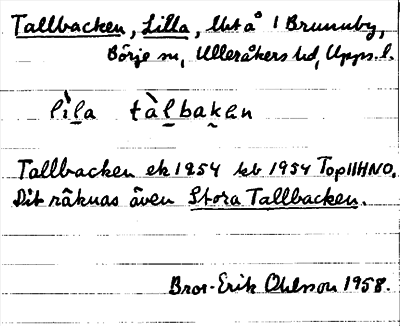 Tallbacken, Lilla, litet å 1 Brunnby,
Börje sn, Ulleråkers hd, Upps. l.
lìla tàlbakan
Tallbacken ek 1954 kb 1954 Top 11HNO.
Dit räknas även Stora Tallbacken.
Bror-Erik Ohlsson 1958.